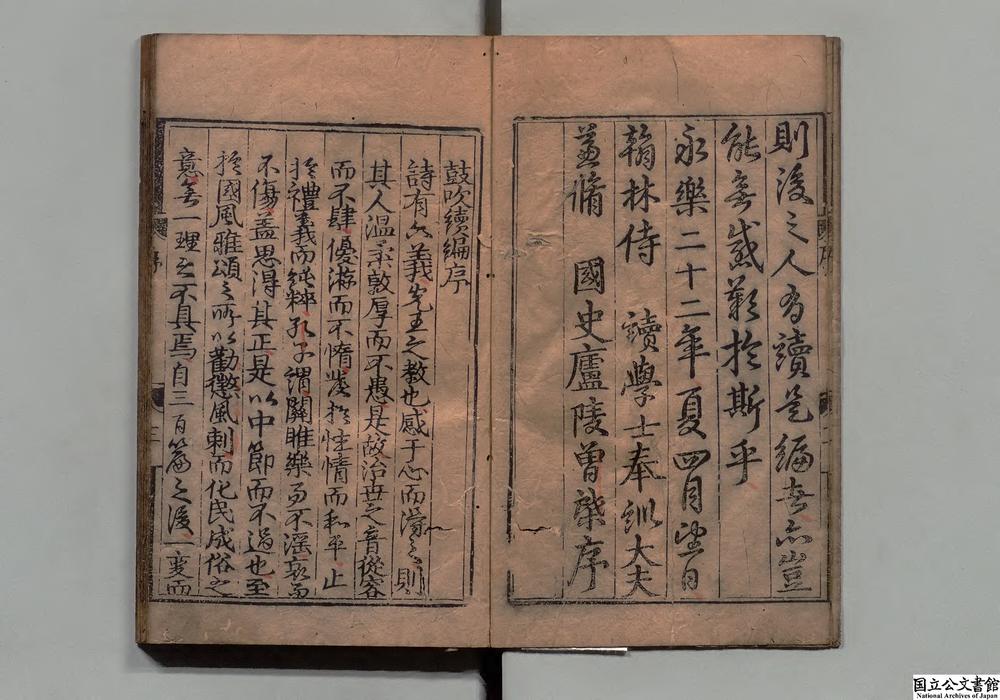 則後之人有讀是編者亦豈
能無感歎於斯乎
永樂二十二年夏四月望日
翰林侍 讀學士奉訓大夫
兼脩 國史廬陵曾棨序
鼓吹續編序
詩有六義先王之教也感于心而得之則
其人溫柔敦厚而不愚是故治世之音從容
而不肆優游而不惰發於性情而和平止
於禮義而純粹孔子謂關雎樂而不淫哀而
不傷蓋思得其正是以中節而不過也至
於國風雅頌之所以勸懲風刺而化民成俗之
意無一理之不具焉自三百篇之後一變而
序
序
三
国立公文書館
National Archives of Japan